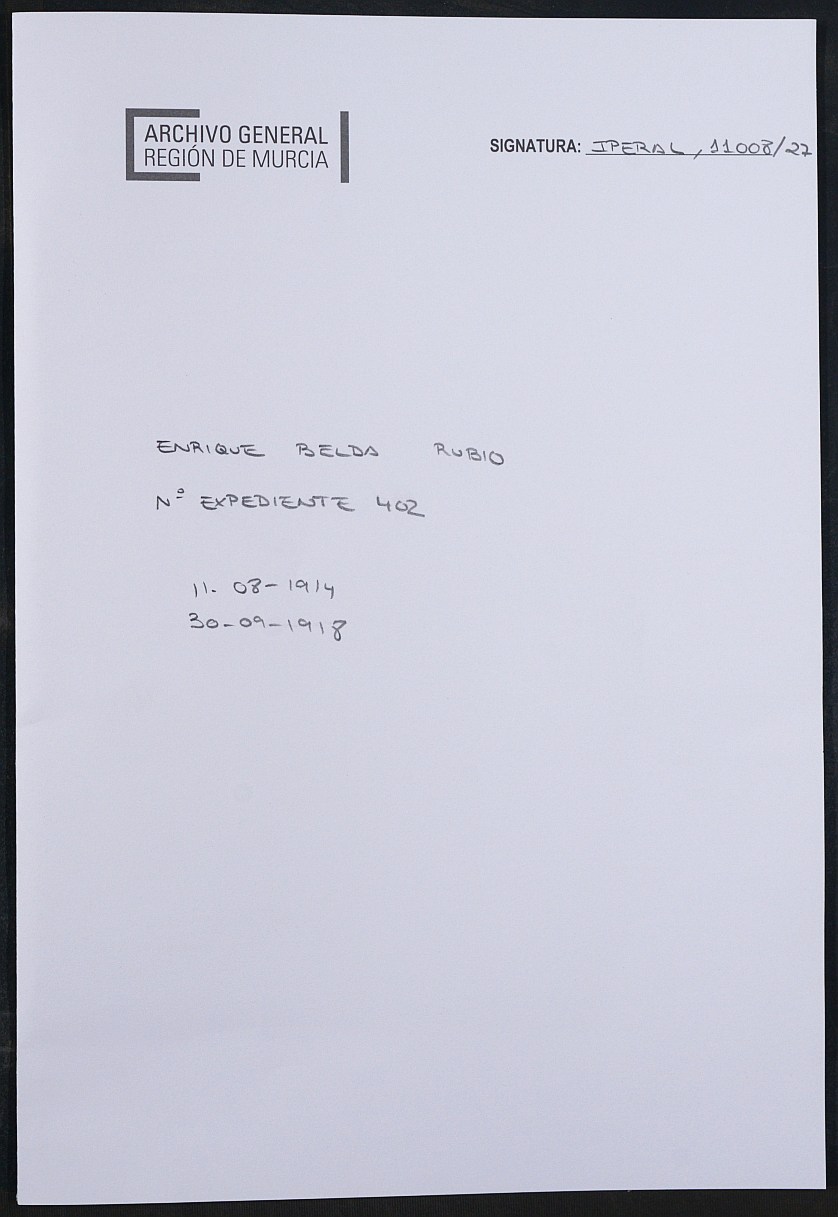 ARCHIVO GENERAL
REGIÓN DE MURCIA
SIGNATURA: IPERAL, 11008/27
ENRIQUE BELDA RUBIO
Nº EXPEDIENTE 402
11-08-1914
30-09-1918